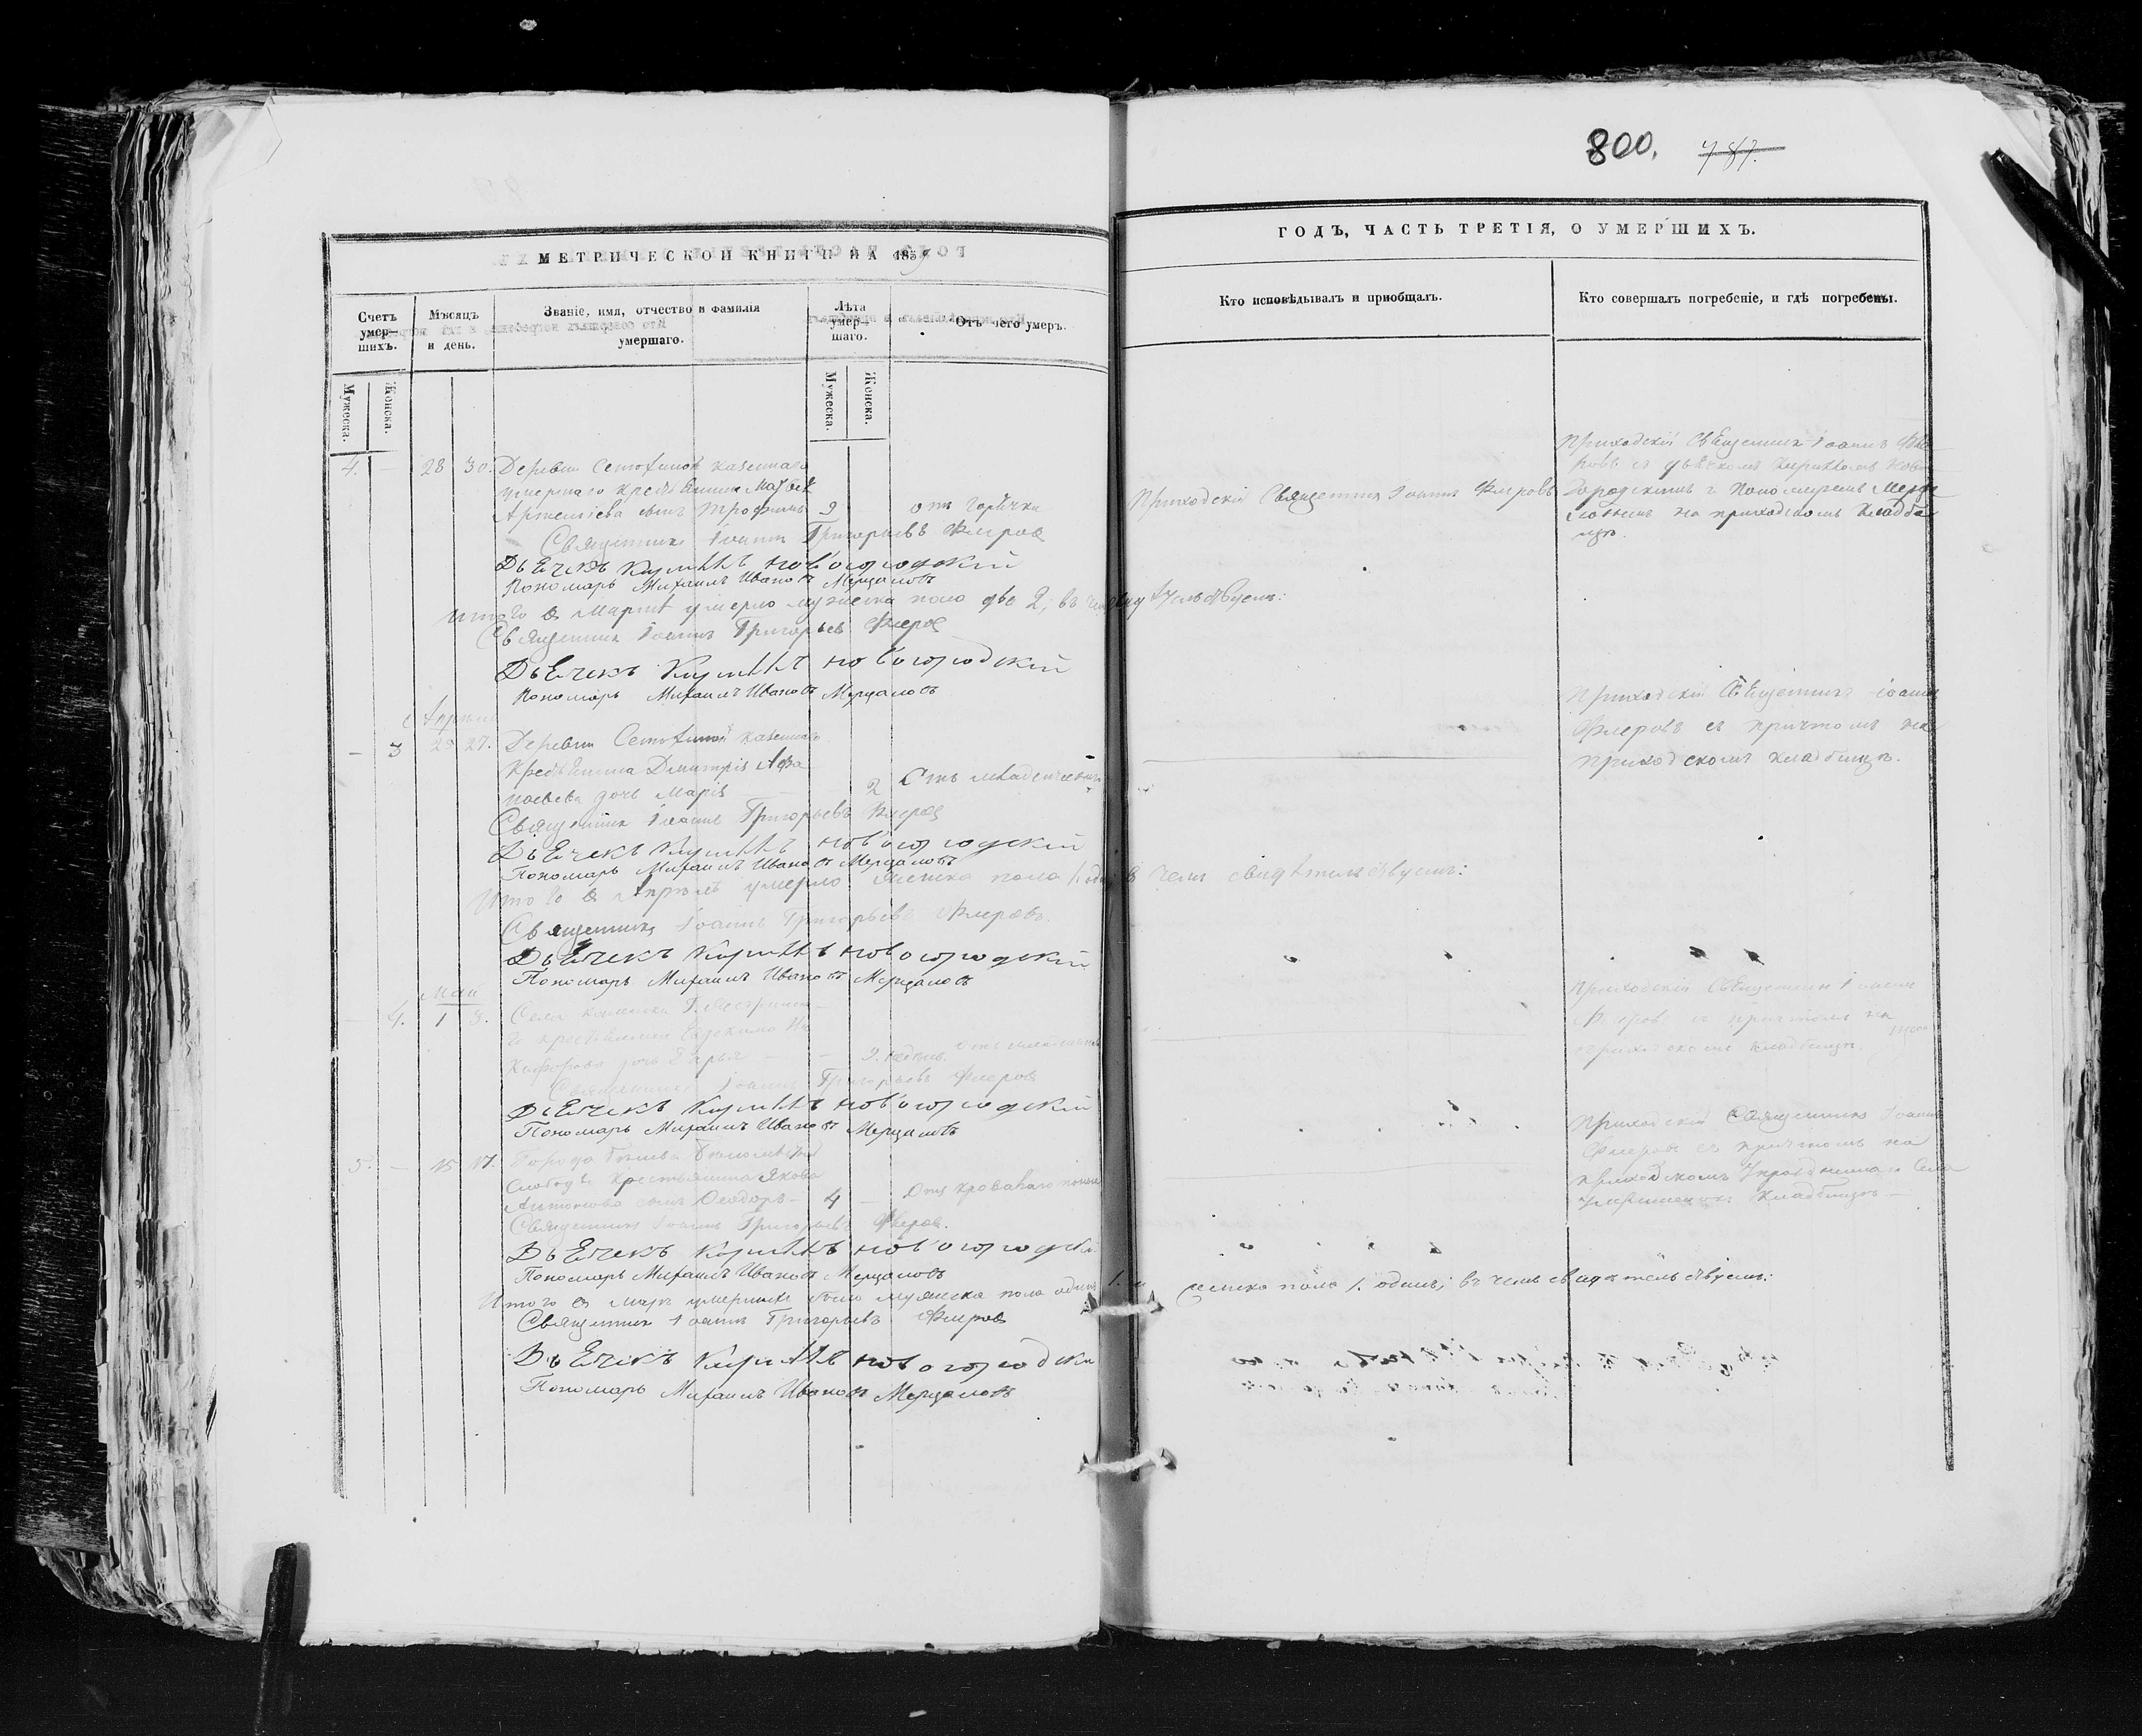 800. 787.
МЕТРИЧЕСКОЙ КНИГИ НА 1839
ГОДЪ, ЧАСТЬ ТРЕТІЯ, О УМЕРШИХЪ.
Счетъ умер-шихъ.
Мѣсяцъ и день.
Званіе, имя, отчество и фамилія умершаго.
Лѣта умер-шаго.
Отъ чего умеръ.
Кто исповѣдывалъ и приобщалъ.
Кто совершалъ погребеніе, и гдѣ погребены.
Мужеска.
Женска.
Мужеска.
Женска.
4. — 28 30. Деревни казеннаго
умершаго крестьянина
сынъ Трофимъ 9 отъ горячки
Приходскій Священникъ Іоаннъ Флеровъ
Приходскій Священникъ Іоаннъ Фле-
ровъ съ дьячкомъ Ново-
городскимъ и Пономаремъ Мерца-
ловымъ на приходскомъ кладби-
щѣ.
Священникъ Іоаннъ Григорьевъ Флеровъ
Дьячекъ Новогородскій
Пономарь Михаилъ Ивановъ Мерцаловъ
Итого въ Мартѣ умерло мужеска пола два 2, въ чемъ свидѣтельствуемъ:
Священникъ Іоаннъ Григорьевъ Флеровъ
Дьячекъ Новогородскій
Пономарь Михаилъ Ивановъ Мерцаловъ
Апрѣль
— 3 25 27. Деревни казеннаго
крестьянина Димитрія Афа-
насьева дочь Марія 2 Отъ младенческой
Приходскій Священникъ Іоаннъ
Флеровъ съ причтомъ на
приходскомъ кладбищѣ.
Священникъ Іоаннъ Григорьевъ Флеровъ
Дьячекъ Новогородскій
Пономарь Михаилъ Ивановъ Мерцаловъ
Итого въ Апрѣлѣ умерло женска пола 1. въ чемъ свидѣтельствуемъ:
Священникъ Іоаннъ Григорьевъ Флеровъ.
Дьячекъ Новогородскій
Пономарь Михаилъ Ивановъ Мерцаловъ
Май
— 4. 1 3. Села
крестьянина Евдокима Ни-
кифорова дочь Дарья — 2. недѣль.
Приходскій Священникъ Іоаннъ
Флеровъ съ причтомъ на
приходскомъ кладбищѣ.
Священникъ Іоаннъ Григорьевъ Флеровъ
Дьячекъ Новогородскій
Пономарь Михаилъ Ивановъ Мерцаловъ
5. — 15 17. Города
Слободы крестьянина Якова
Антонова сынъ Ѳеодоръ — 4 — Отъ кроваваго поноса
Приходскій Священникъ Іоаннъ
Флеровъ съ причтомъ на
приходскомъ Села
кладбищѣ —
Священникъ Іоаннъ Григорьевъ Флеровъ.
Дьячекъ Новогородскій
Пономарь Михаилъ Ивановъ Мерцаловъ
Итого въ Маѣ умершихъ было мужеска пола одинъ 1. и женска пола 1. одинъ; въ чемъ свидѣтельствуемъ:
Священникъ Іоаннъ Григорьевъ Флеровъ
Дьячекъ Новогородскій
Пономарь Михаилъ Ивановъ Мерцаловъ